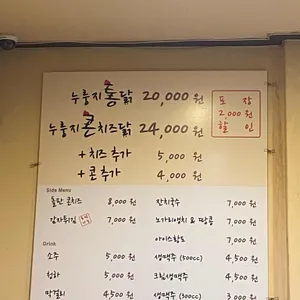 누룽지통닭 20,000 원
포 장
2,000 원
할 인
누룽지콘치즈닭 24,000 원
+ 치즈 추가 5,000 원
+ 콘 추가 4,000 원
Side Menu
돌판 콘치즈 8,000 원
잔치국수 7,000 원
감자튀김 7,000 원
노가리&쥐치 & 땅콩 7,000 원
아이스황도 7,000 원
Drink
소주 5,000 원
생맥주 (500cc) 4,500 원
청하 5,000 원
크림생맥주 4,500 원
막걸리 4,500 원
생맥주 (300cc) 3,000 원